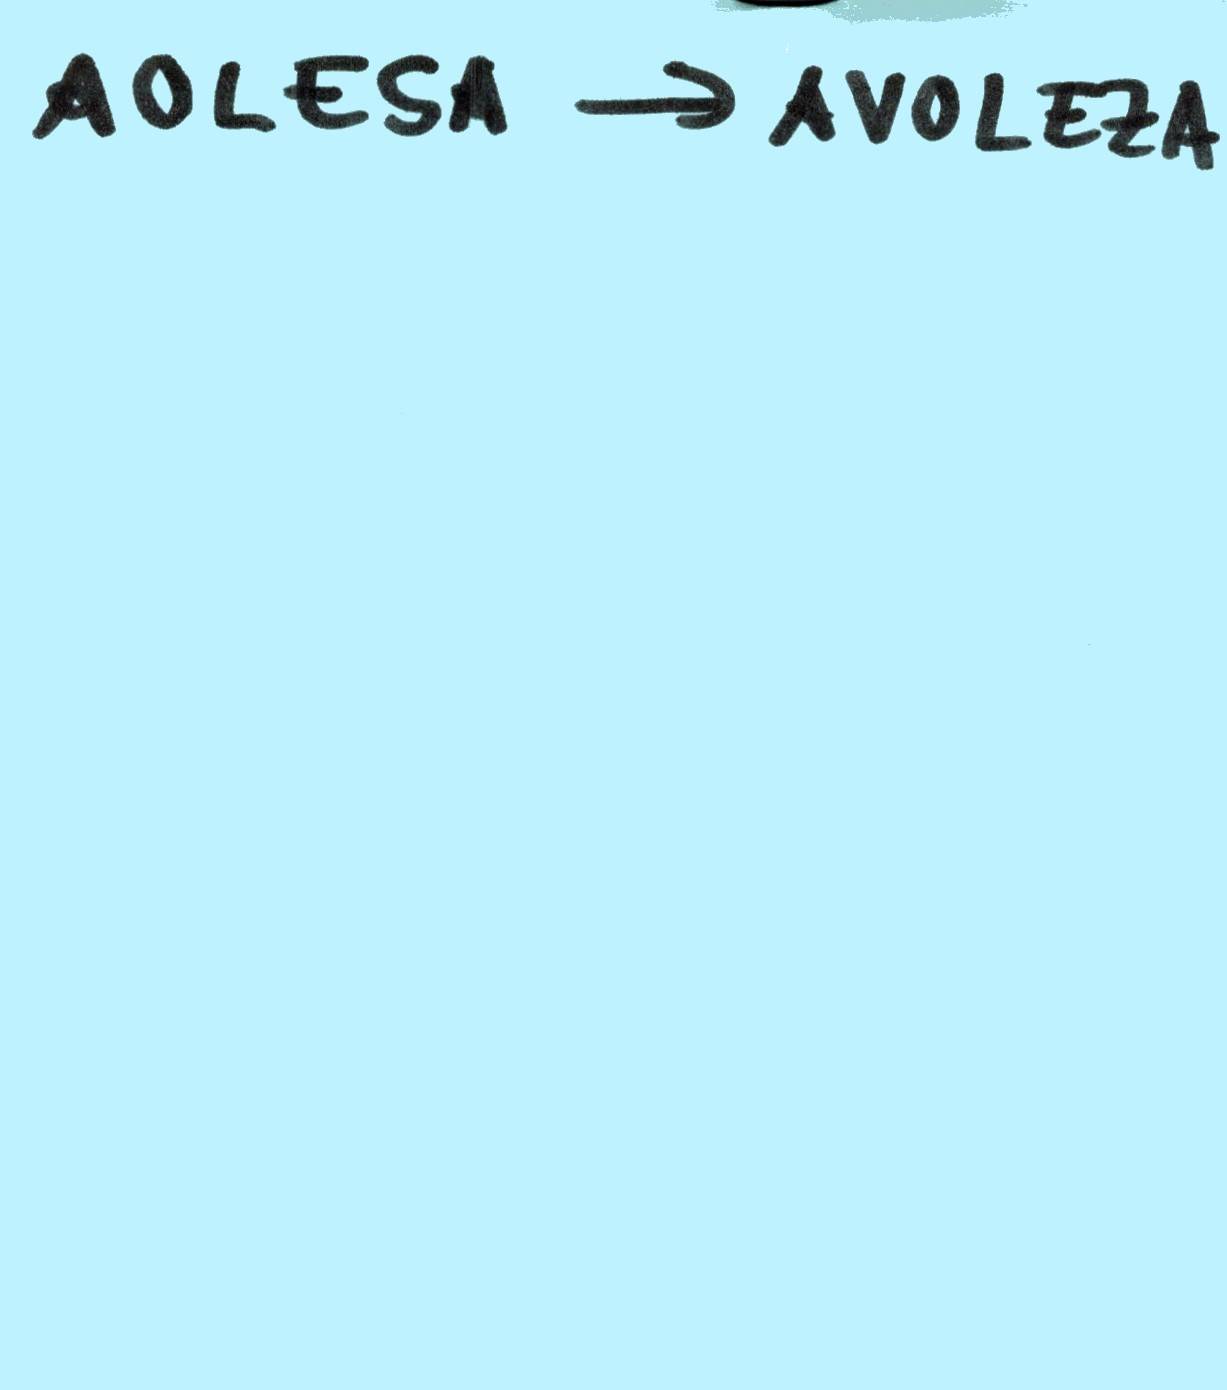 AOLESA → AVOLEZA